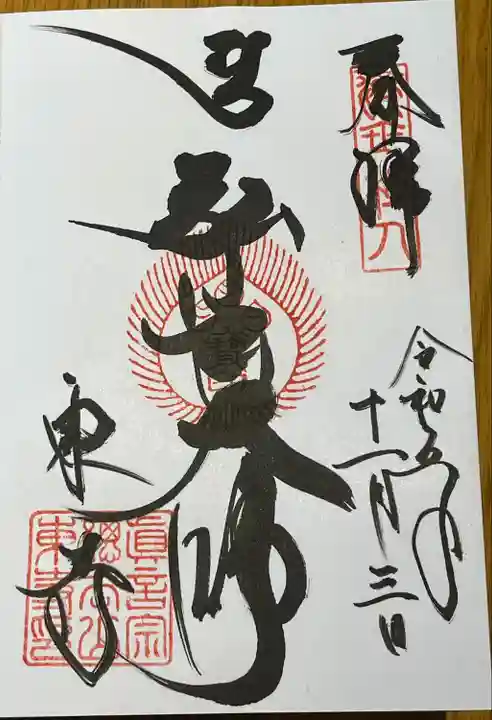 奉拝
令和五年
十一月三日
弘法大師
東寺
真言宗
総本山
東寺印